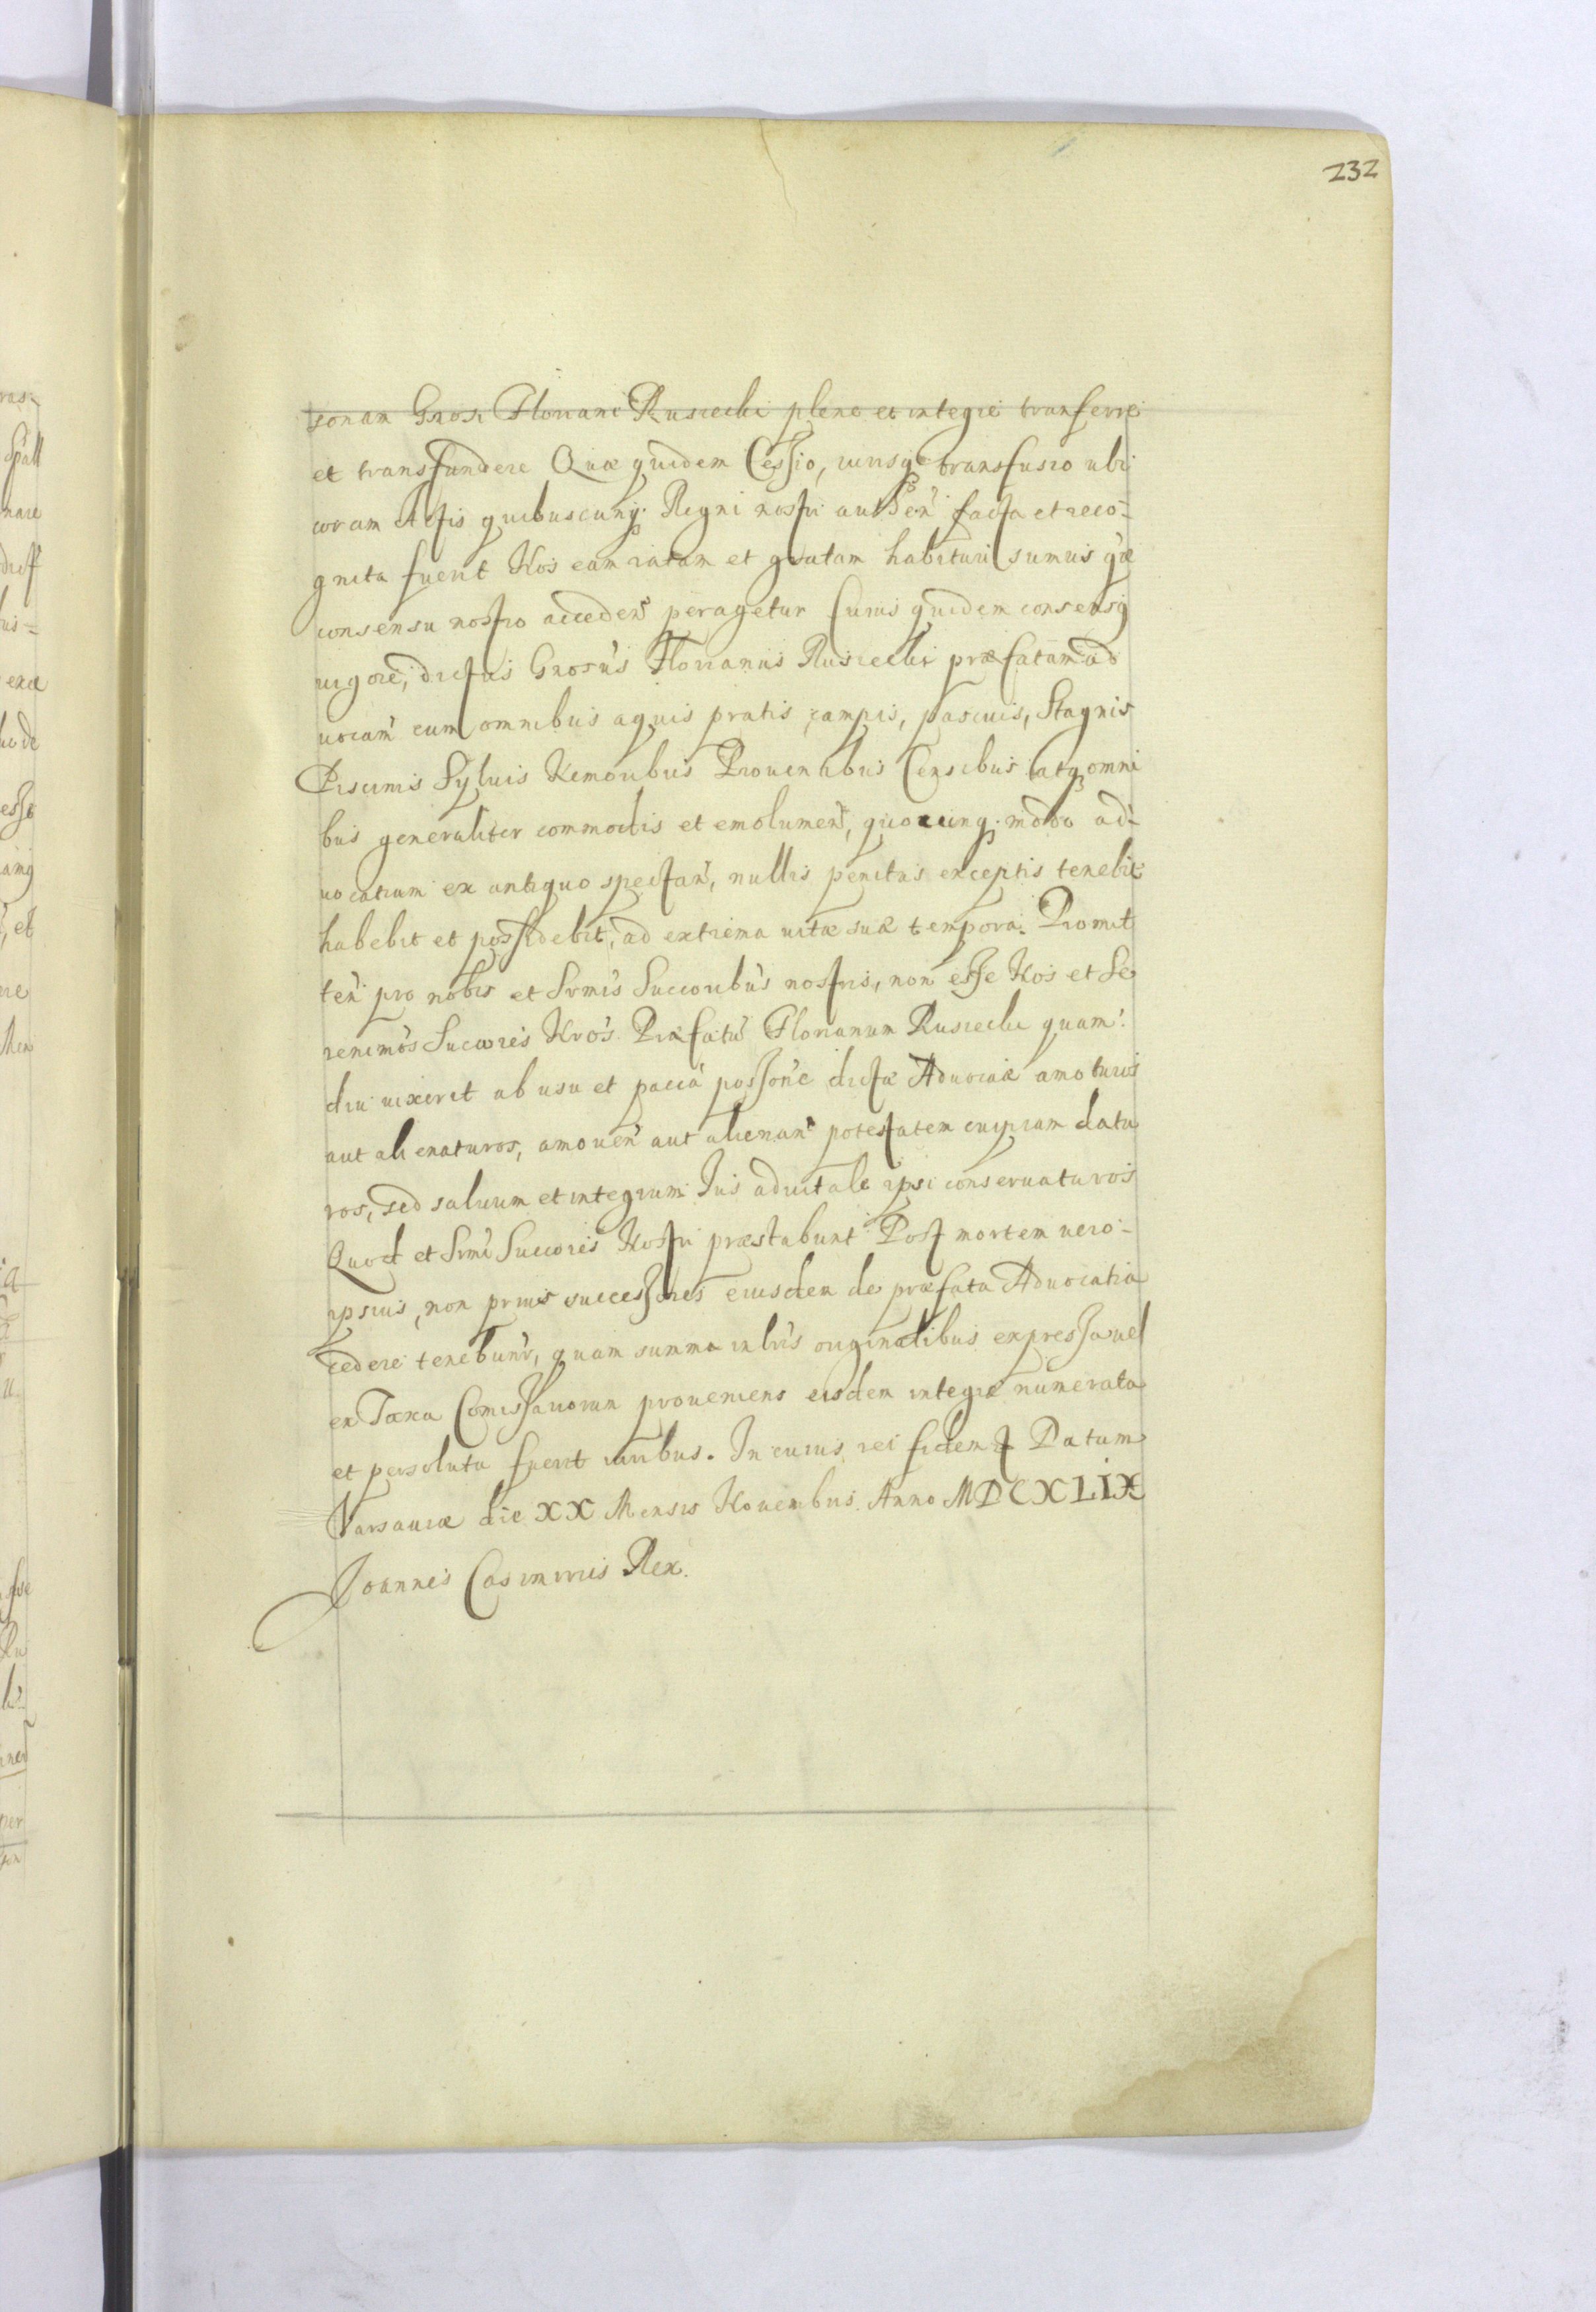 232
sonam Gnosi Floriani Rusiecki plene et integre transferre
et transfundere Quæ quidem Cessio, iurisq transfusio ubi
coram Actis quibuscunq Regni nostri authen facta et reco=
gnita fuerit Nos eam ratam et gratam habituri sumus qæ
consensu nostro acceden peragetur Cuius quidem consensq
uigore, dictus Gnosus Florianus Rusiecki præfatam ad
uocam cum omnibus aquis pratis, campis, pascuis, Stagnis
Piscinis Syluis Nemoribus Prouentibus Censibus atq omni
bus generaliter commodis et emolumen, quocunq modo ad=
uocatiam ex antiquo spectan, nullis penitus exceptis tenebit
habebit et possidebit, ad extrema uitæ suæ tempora. Promit
ten pro nobis et Srmis Succoribus nostris, non esse Nos et Se
renimos Succores Nros Præfatu Florianum Rusiecki quam
diu uixerit ab usu et paca possone dictæ Aduocaæ amoturos
aut alienaturos, amouen aut alienan potestatem cuipiam datu
ros, sed saluum et integrum Jus aduitale ipsi conseruaturos
Quod et Srmi Succores Nostri præstabunt Post mortem uero=
ipsius, non prius successores eiusdem de præfata Aduocatia
cedere tenebunr, quam summa in lris originalibus expressa uel
ex Taxa Comissariorum proueniens eisdem integre numerata
et persoluta fuerit iuribus. In cuius rei fidem Datum
Varsauiæ die XX Mensis Nouembris Anno MDCXLIX
Joannes Casimirus Rex.